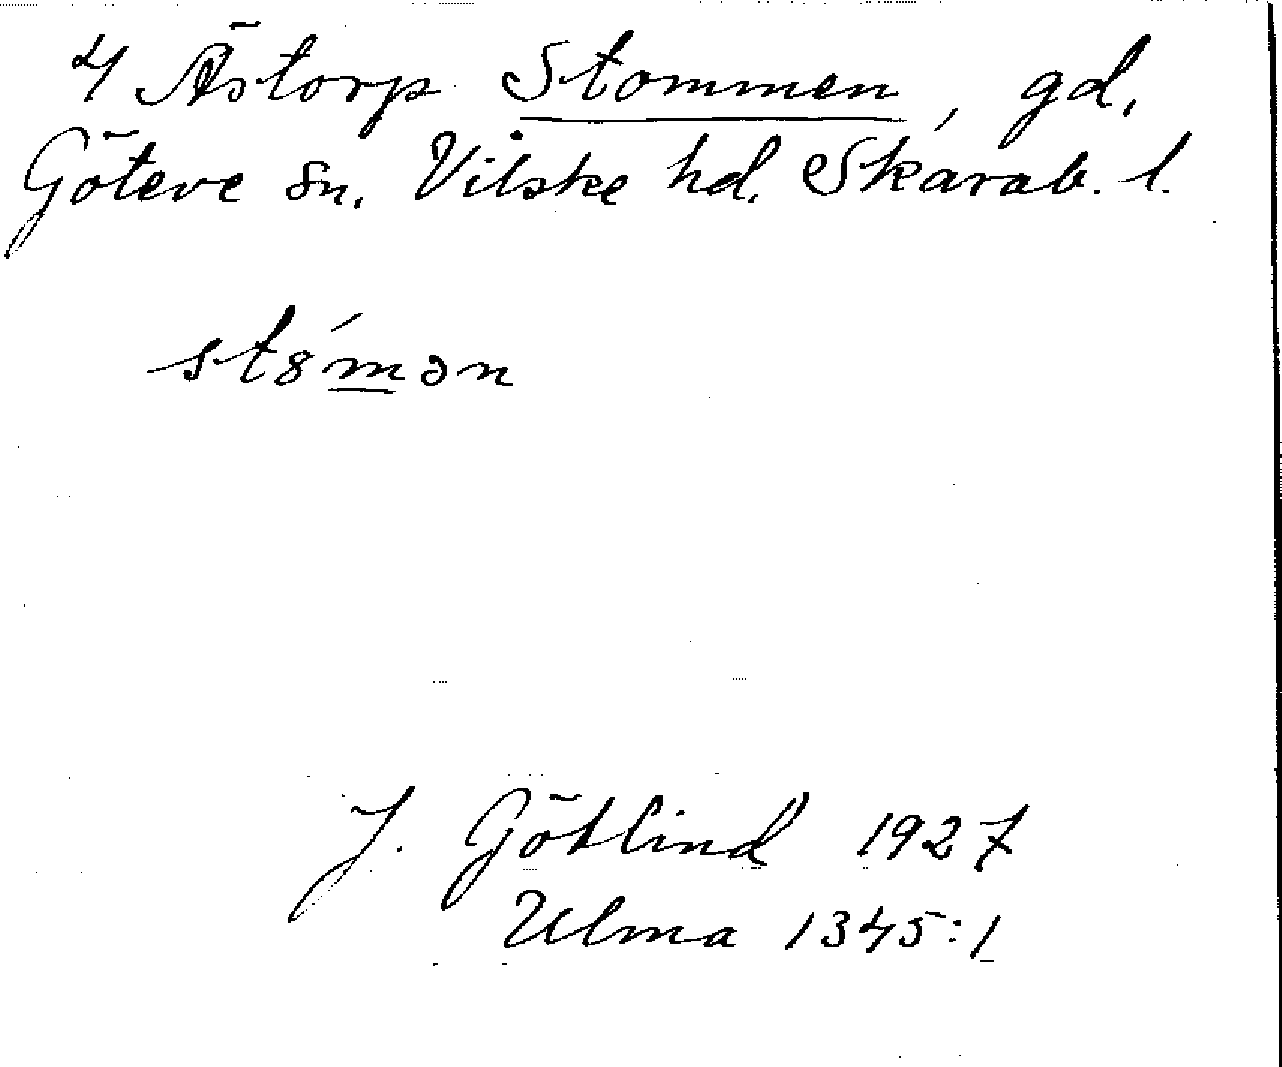 4 Ästorp Stommen, gd,
Göteve sn. Vilske hd. Skarab. l.
st8́mən
J. Götlind 1927
Ulma 1345:1